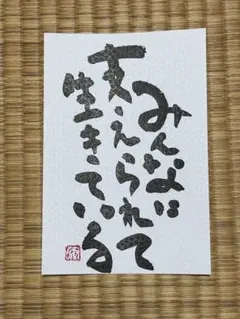 みんなに
支えられて
生きている